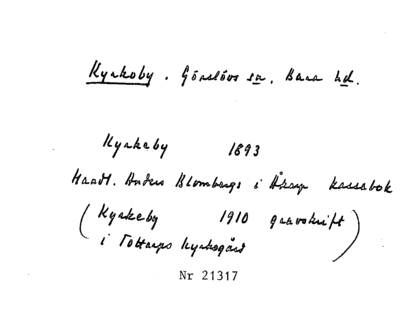 Kyrkoby. Görslövs sn, Bara hd.
Kyrkeby 1893
Handl. Anders Blombergs i Åkarp kassabok
(Kyrkeby 1910 gravskrift)
i Tottarps kyrkogård
Nr 21317